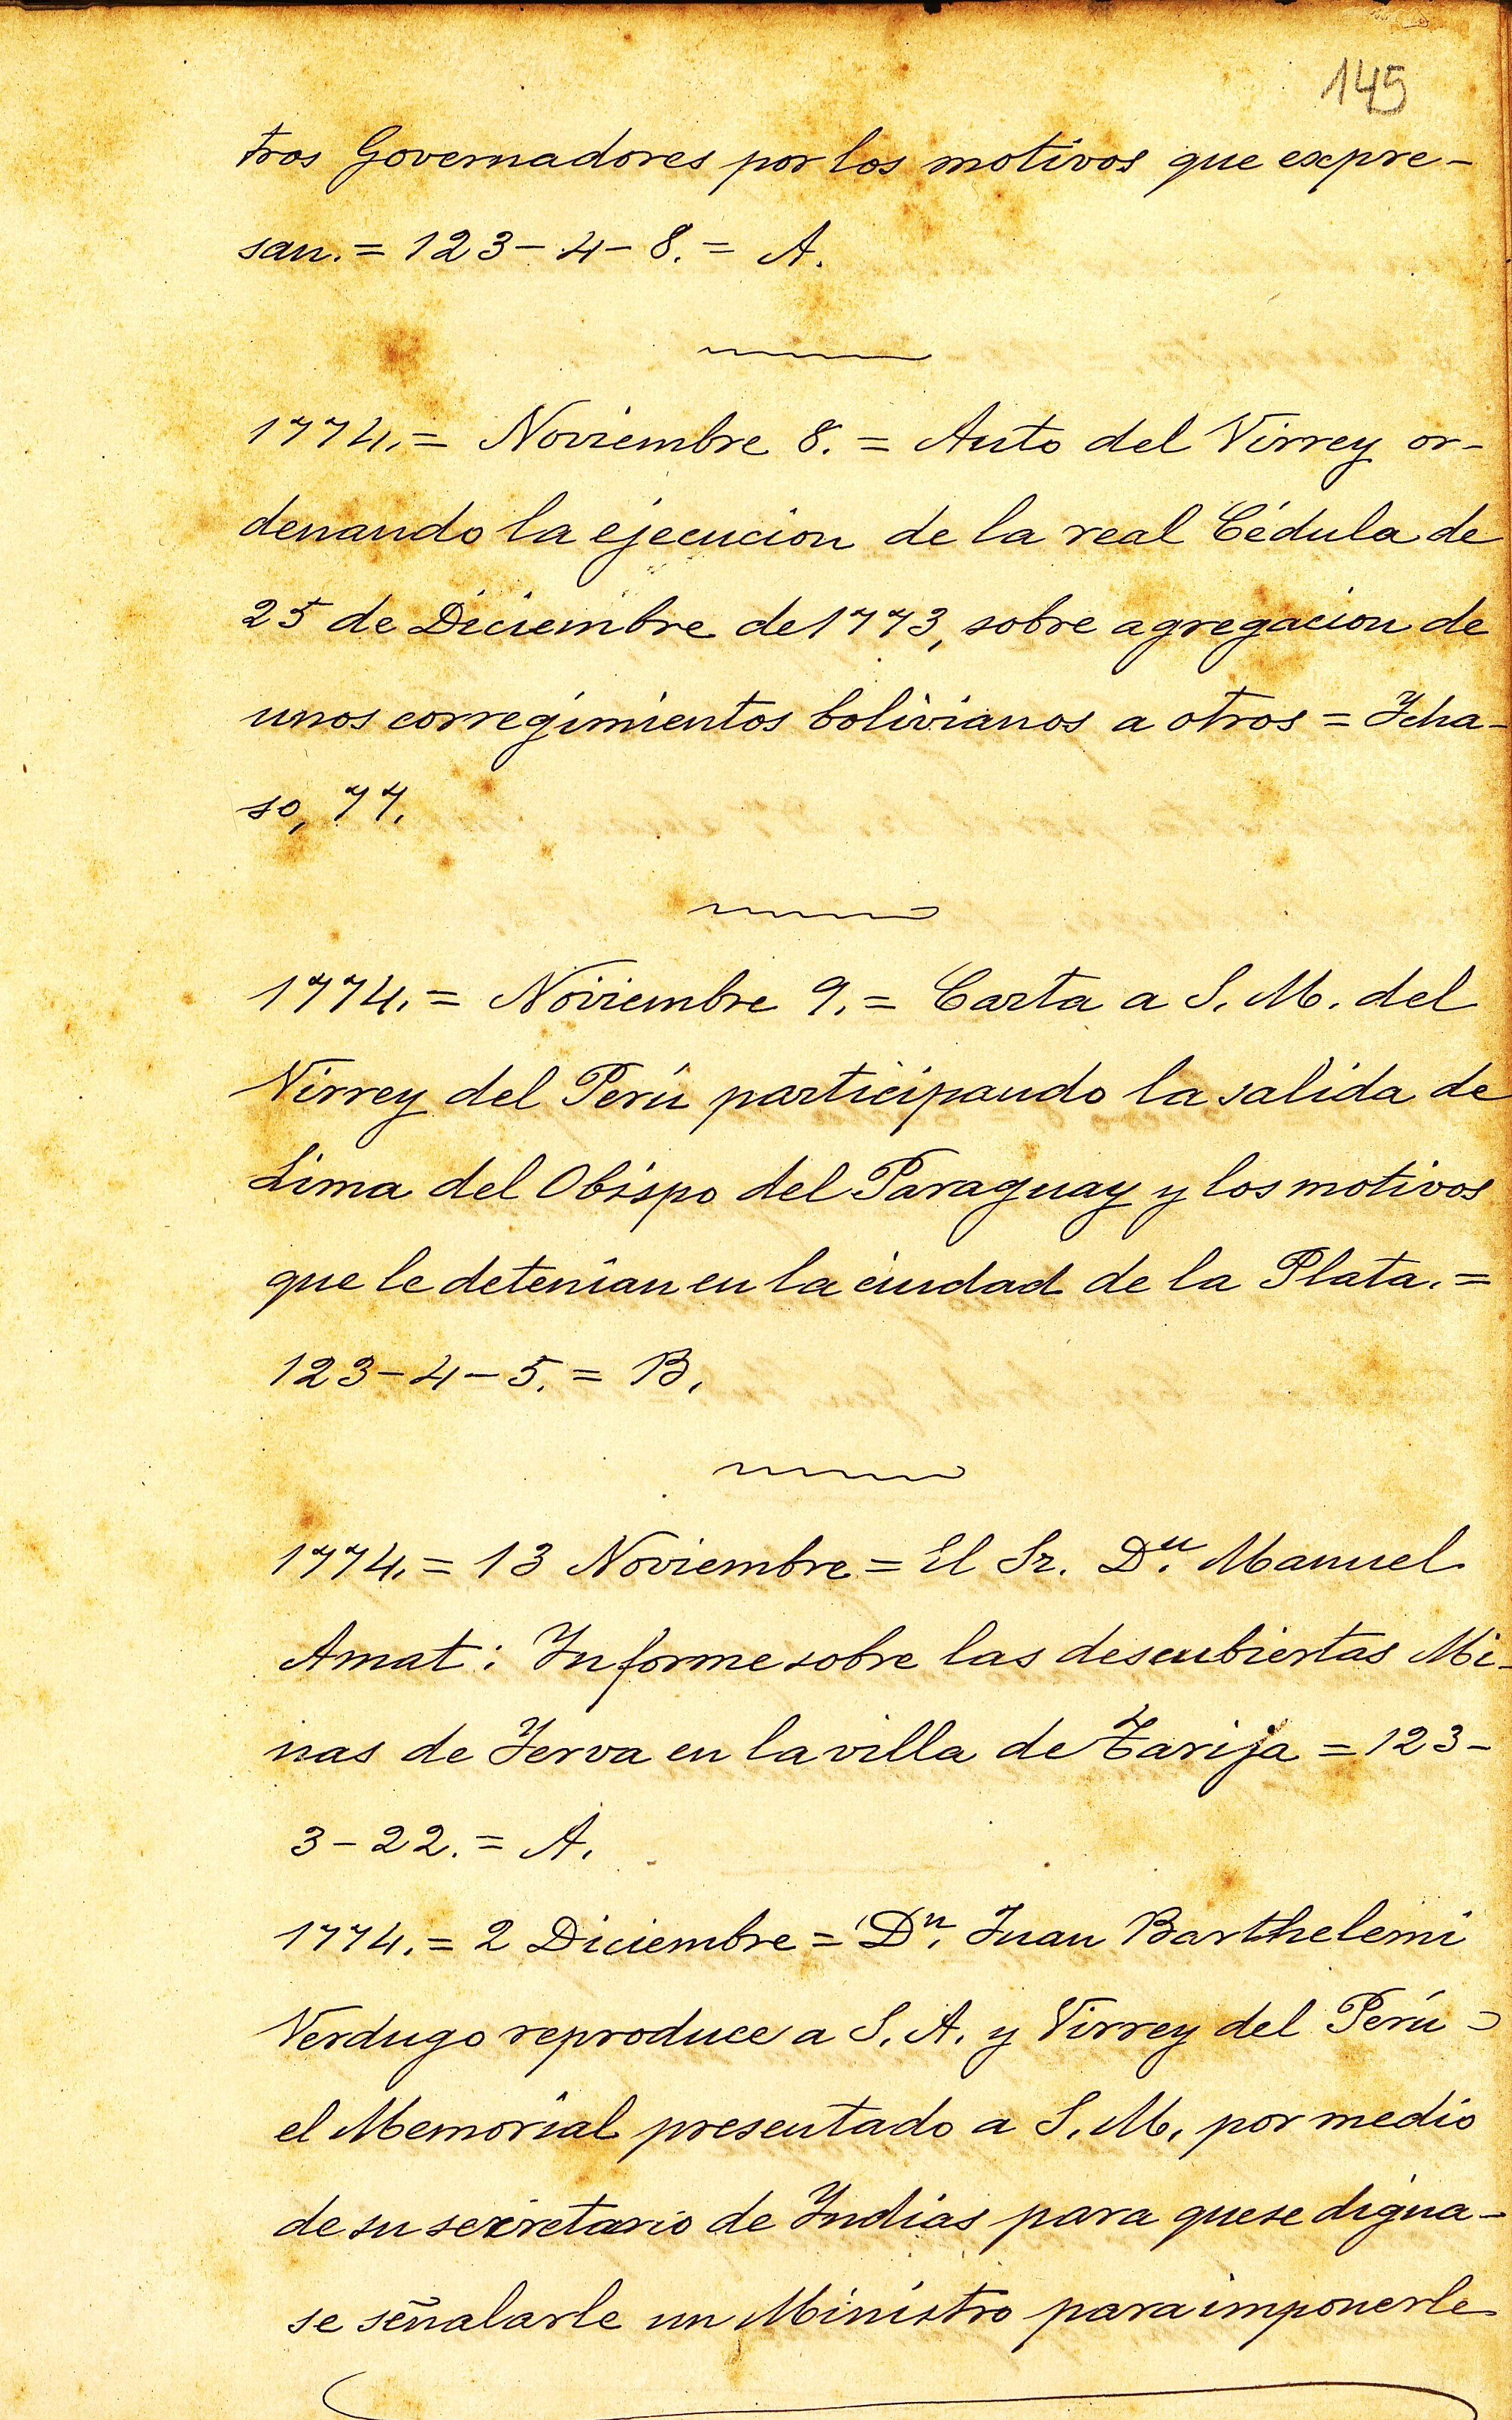 145
tros Governadores por los motivos que expre-
san. = 123-4-8. = A.
1774. = Noviembre 8. = Auto del Virrey or-
denando la ejecucion de la real Cédula de
25 de Diciembre de 1773, sobre agregacion de
unos corregimientos bolivianos a otros = Icha-
so, 77.
1774. = Noviembre 9. = Carta a S. M. del
Virrey del Perú participando la salida de
Lima del Obispo del Paraguay y los motivos
que le detenían en la ciudad de la Plata. =
123-4-5. = B.
1774. = 13 Noviembre = El Sr. Dn. Manuel
Amat: Informe sobre las descubiertas Mi-
nas de Yerva en la villa de Tarija = 123-
3-22. = A.
1774. = 2 Diciembre = Dn. Juan Barthelemi
Verdugo reproduce a S. A. y Virrey del Perú =
el Memorial presentado a S. M. por medio
de su secretario de Indias para que se digna-
se señalarle un Ministro para imponerle